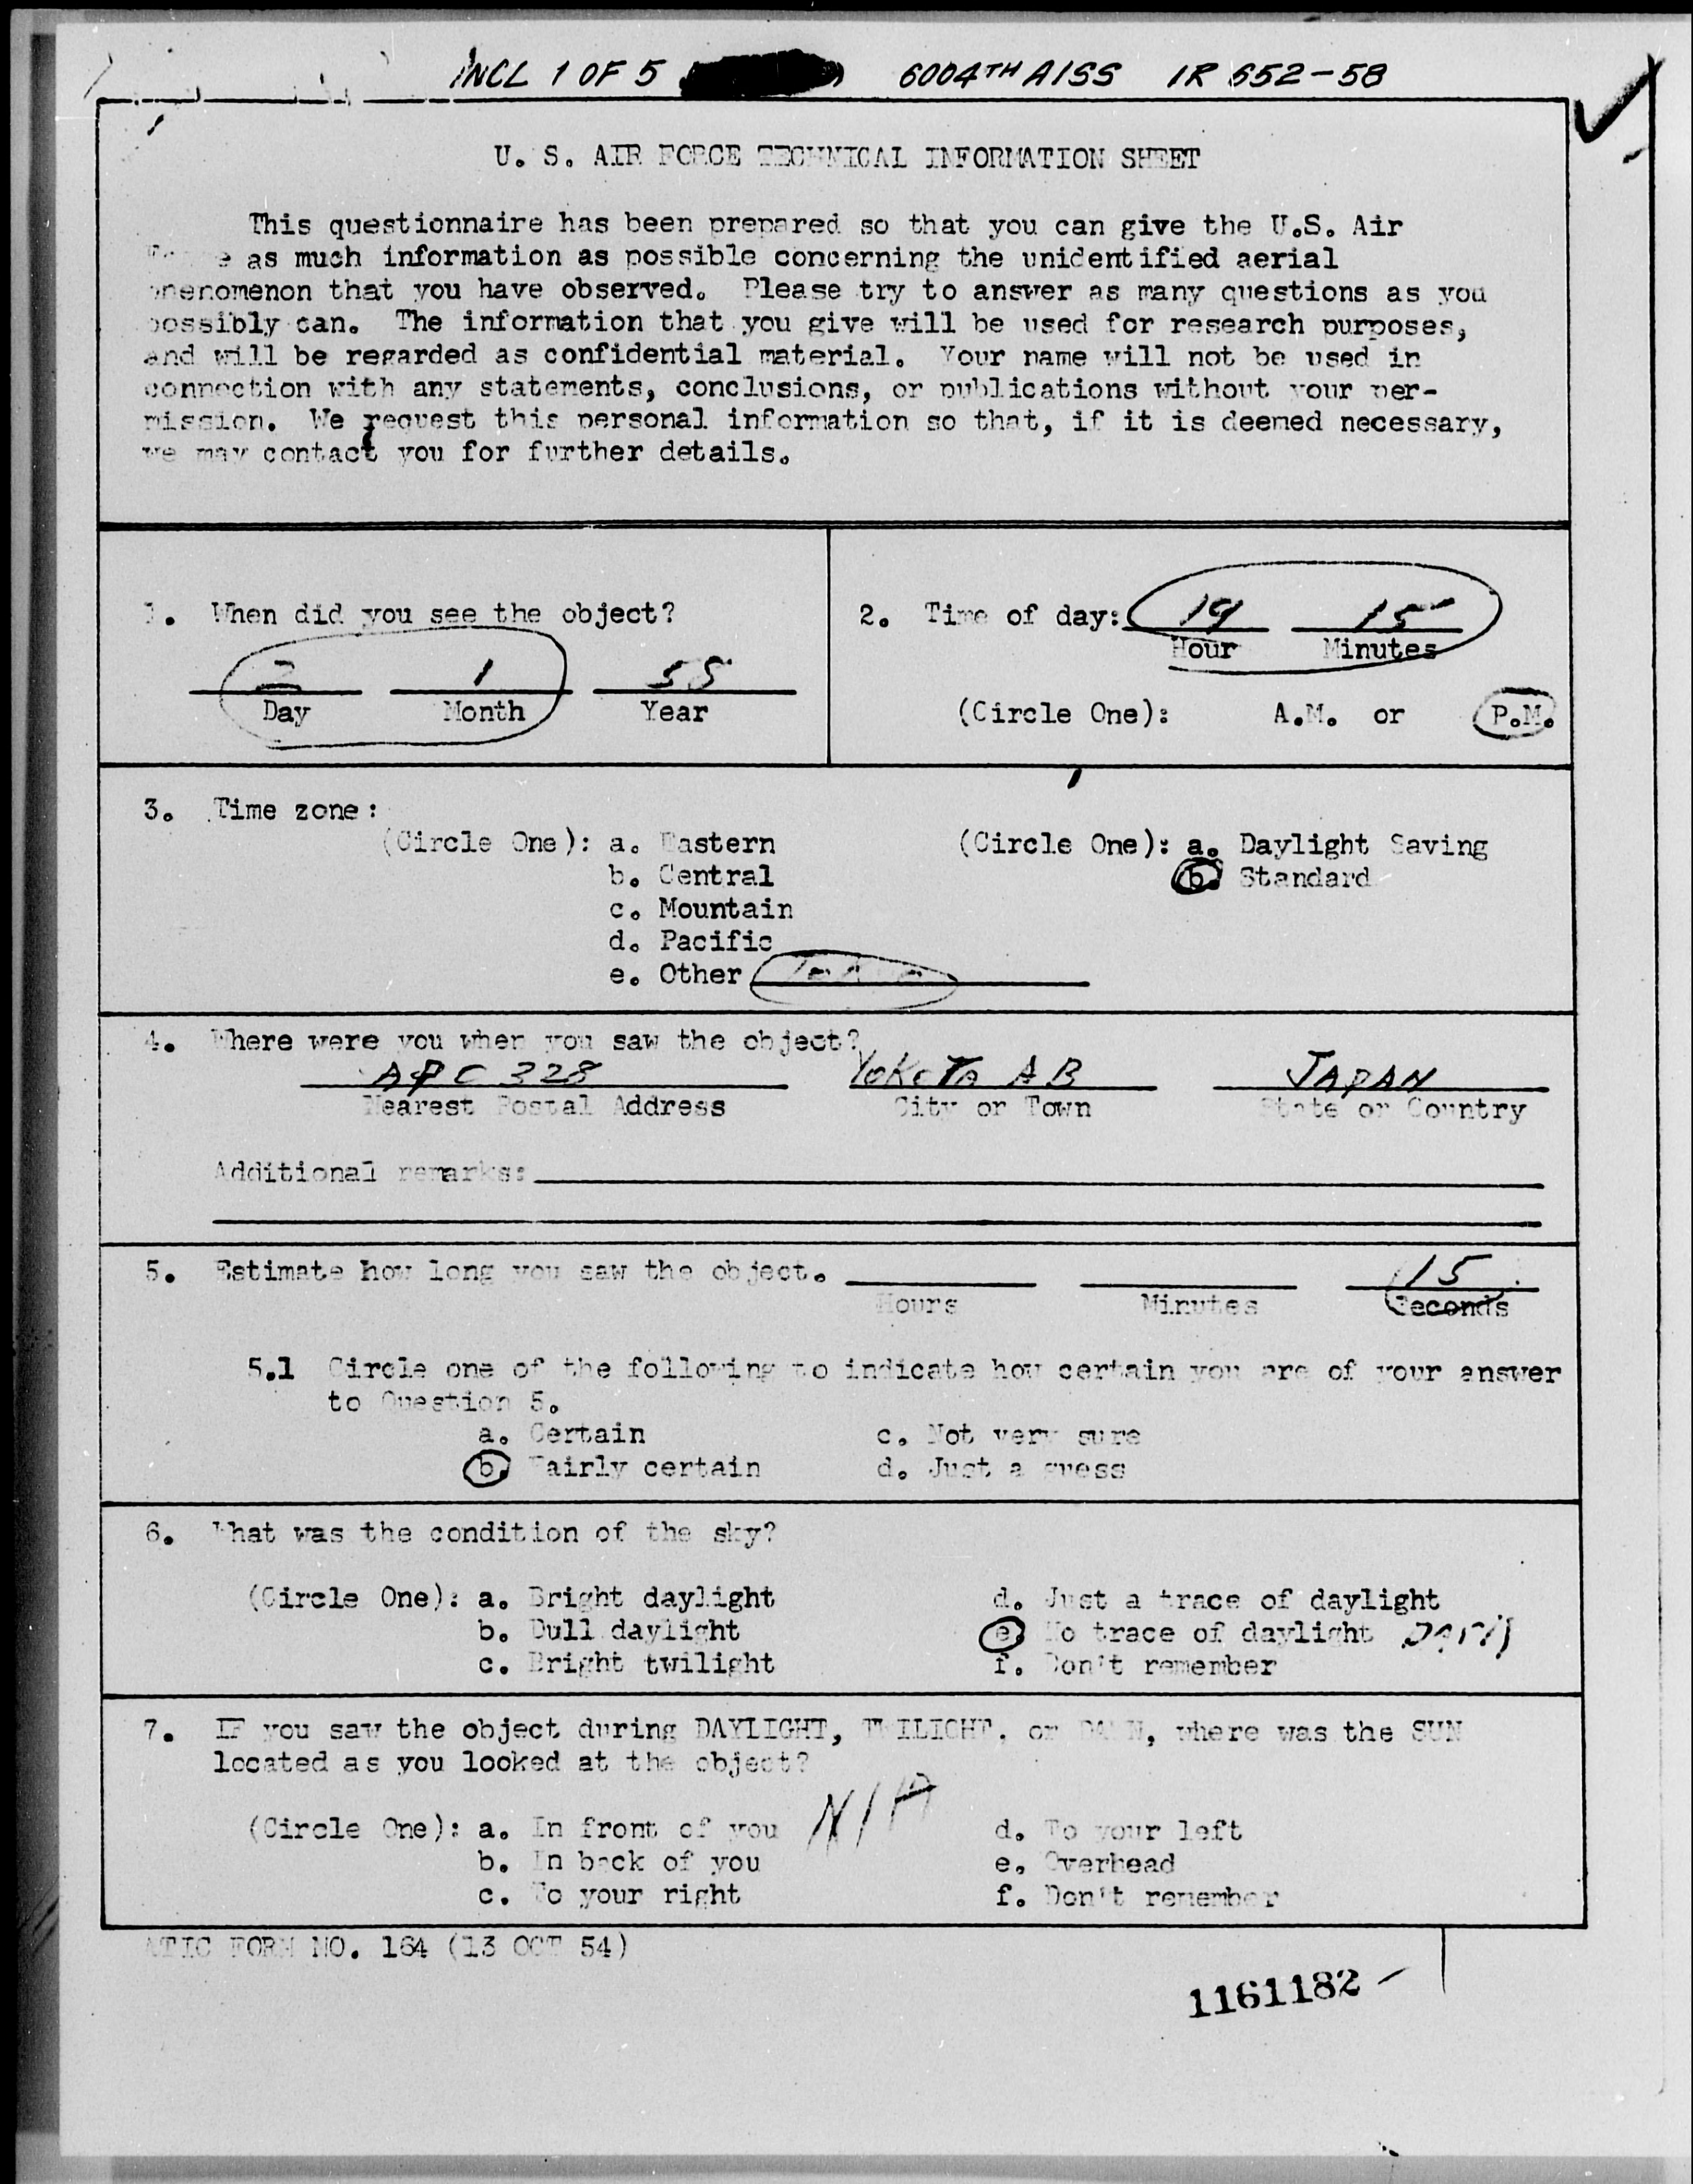 INCL 1 OF 5 6004TH AISS IR 652-58
U. S. AIR FORCE TECHNICAL INFORMATION SHEET
This questionnaire has been prepared so that you can give the U.S. Air
Force as much information as possible concerning the unidentified aerial
phenomenon that you have observed. Please try to answer as many questions as you
possibly can. The information that you give will be used for research purposes,
and will be regarded as confidential material. Your name will not be used in
connection with any statements, conclusions, or publications without your per-
mission. We request this personal information so that, if it is deemed necessary,
we may contact you for further details.
1. When did you see the object?
2 1 58
Day Month Year
2. Time of day: 19 15
Hour Minutes
(Circle One): A.M. or P.M.
3. Time zone:
(Circle One): a. Eastern (Circle One): a. Daylight Saving
b. Central b. Standard
c. Mountain
d. Pacific
e. Other
4. Where were you when you saw the object?
328 YOKOTA AB JAPAN
Nearest Postal Address City or Town State or Country
Additional remarks:
5. Estimate how long you saw the object. 15
Hours Minutes Seconds
5.1 Circle one of the following to indicate how certain you are of your answer
to Question 5.
a. Certain c. Not very sure
b. Fairly certain d. Just a guess
6. What was the condition of the sky?
(Circle One): a. Bright daylight d. Just a trace of daylight
b. Dull daylight e. No trace of daylight
c. Bright twilight f. Don't remember
7. IF you saw the object during DAYLIGHT, TWILIGHT, or DAWN, where was the SUN
located as you looked at the object?
N/A
(Circle One): a. In front of you d. To your left
b. In back of you e. Overhead
c. To your right f. Don't remember
ATIC FORM NO. 164 (13 OCT 54)
1161182